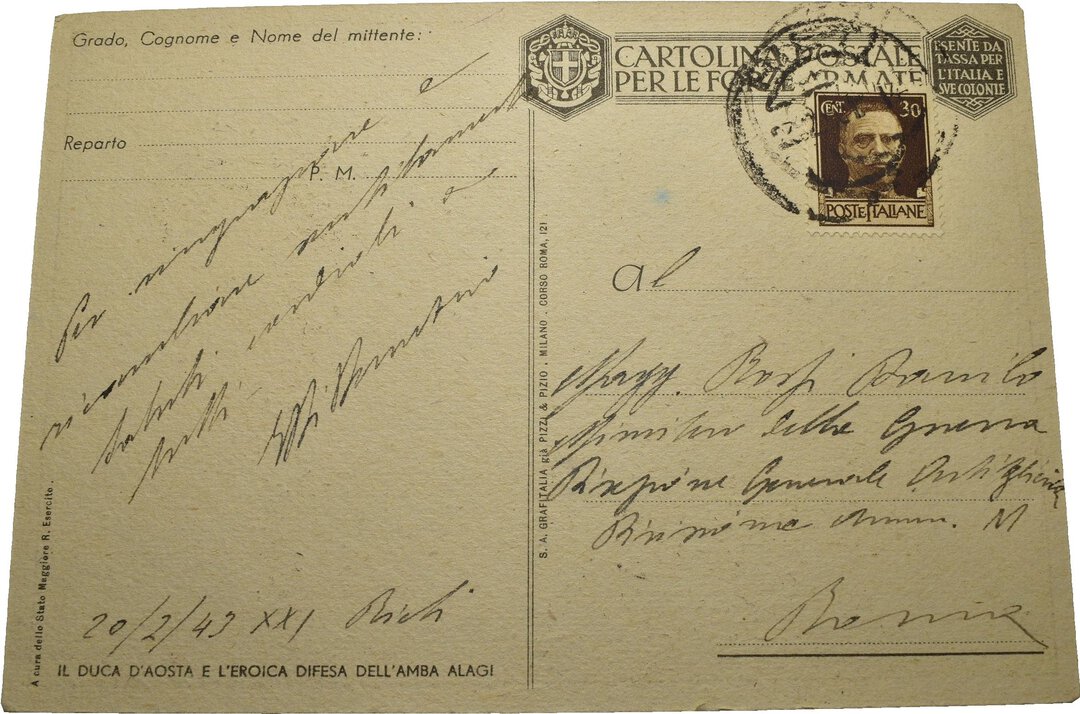 Grado, Cognome e Nome del mittente:
Reparto
P. M.
Per ringraziare e
ricambiare
saluti cordiali a
tutti
20/2/43 XXI
IL DUCA D'AOSTA E L'EROICA DIFESA DELL'AMBA ALAGI
A cura dello Stato Maggiore R. Esercito.
S. A. GRAFITALIA già PIZZI & PIZIO . MILANO . CORSO ROMA, 121.
CARTOLINA POSTALE
PER LE FORZE ARMATE
ESENTE DA
TASSA PER
L'ITALIA E
SVE COLONIE
CENT. 30
POSTE ITALIANE
al
Magg. Rossi Danilo
Ministero della Guerra
Direzione Generale Artiglieria
Divisione M
Roma